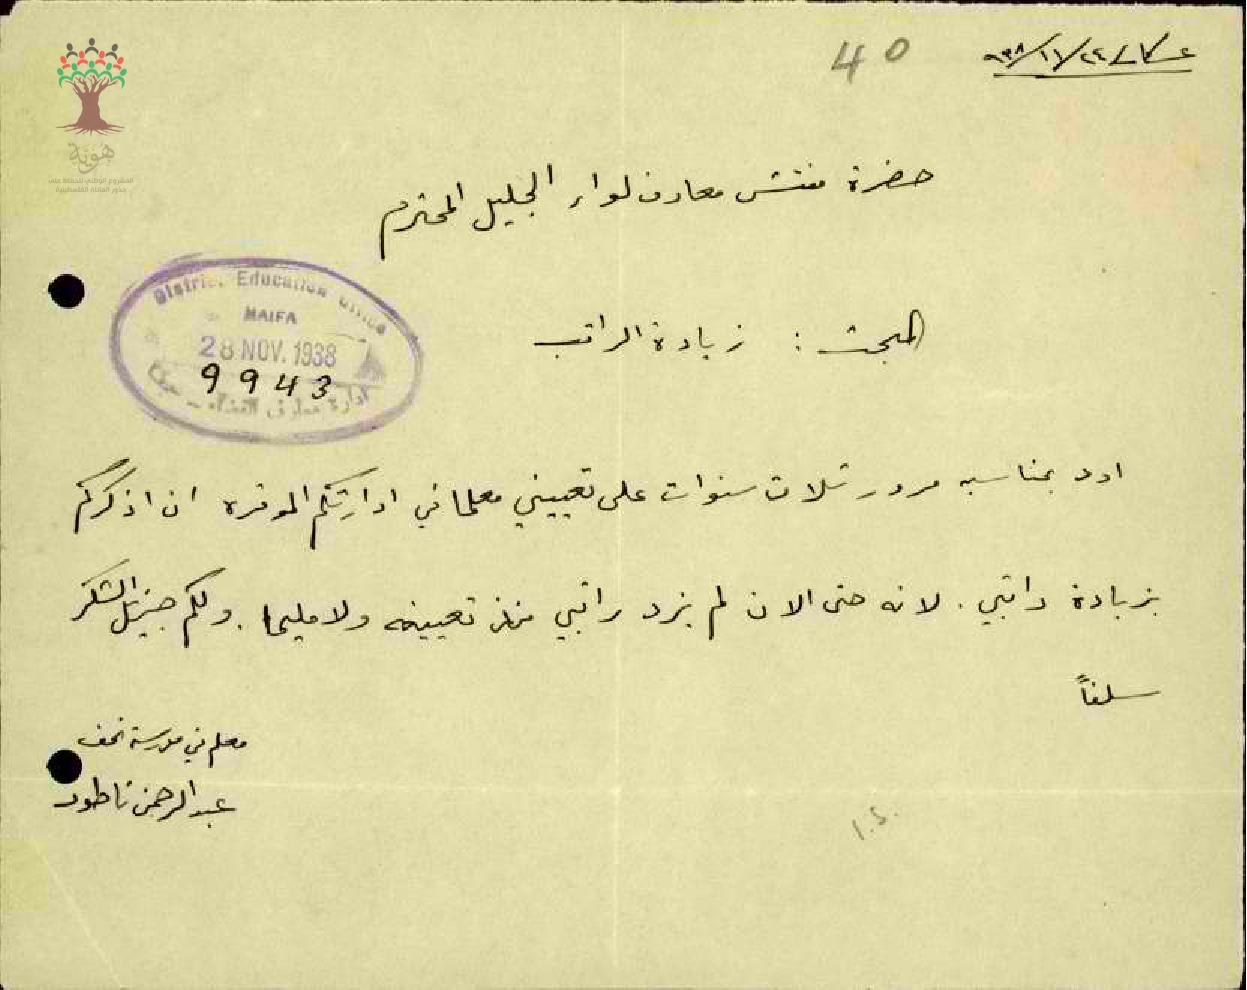 40
عكا في ٢٤/١١/٩٣٨
هوية
المشروع الوطني للحفاظ على
جذور العائلة الفلسطينية
حضرة مفتش معارف لواء الجليل المحترم
District Education Office
HAIFA
28 NOV. 1938
9943
ادارة معارف القضاء - حيفا
المبحث : زيادة الراتب
اود بمناسبه مرور ثلاث سنوات على تعييني معلما في ادارتكم الموقره ان اذكركم
بزيادة راتبي . لانه حتى الان لم يزد راتبي منذ تعيينه ولا مليما . ولكم جزيل الشكر
سلفاً
معلم في مدرسة نحف
عبد الرحمن ناطور